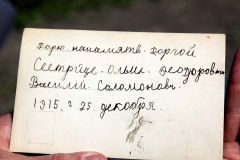 дарю напамять доргой
Сестрице. Ольги. Феодоровны
Василій. Соломонов.
1915. г 25. декабря.